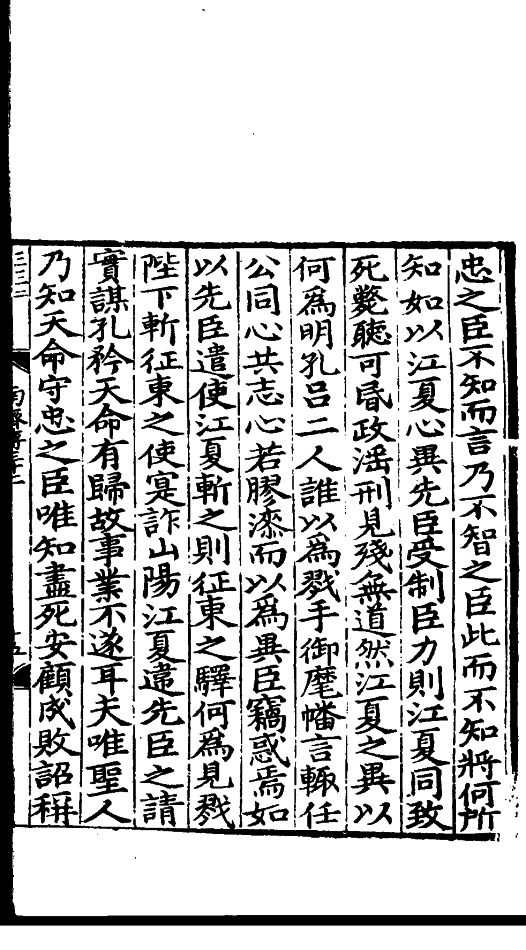 忠之臣不知而言乃不智之臣此而不知將何所
知如以江夏心異先臣受制臣力則江夏同致
死斃聽可昬政淫刑見殘無道然江夏之異以
何爲明孔呂二人誰以爲戮手御麾幡言輙任
公同心共志心若膠漆而以爲異臣竊惑焉如
以先臣遣使江夏斬之則征東之驛何爲見戮
陛下斬征東之使寔詐山陽江夏違先臣之請
實謀孔矜天命有歸故事業不遂耳夫唯聖人
乃知天命守忠之臣唯知盡死安顧成敗詔稱